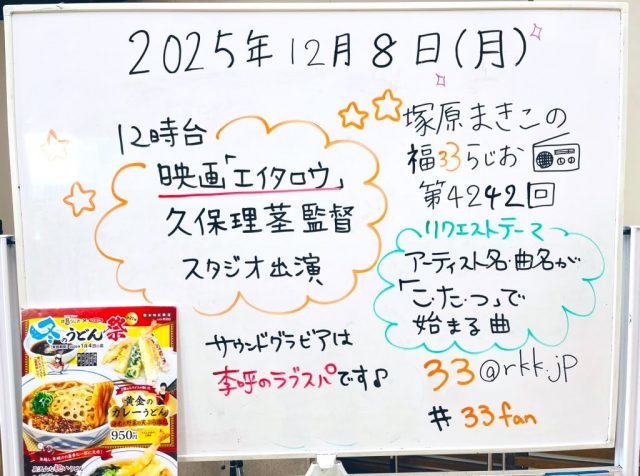 2025年12月8日(月)
12時台
映画「エイタロウ」
久保理茎監督
スタジオ出演
塚原まきこの
福33らじお
第4242回
リクエストテーマ
アーティスト名・曲名が
「こ・た・つ」で
始まる曲
サウンドグラビアは
李呼のラブスパです♪
33@rkk.jp
#33fan
冬のうどん祭
黄金の
カレーうどん
950円